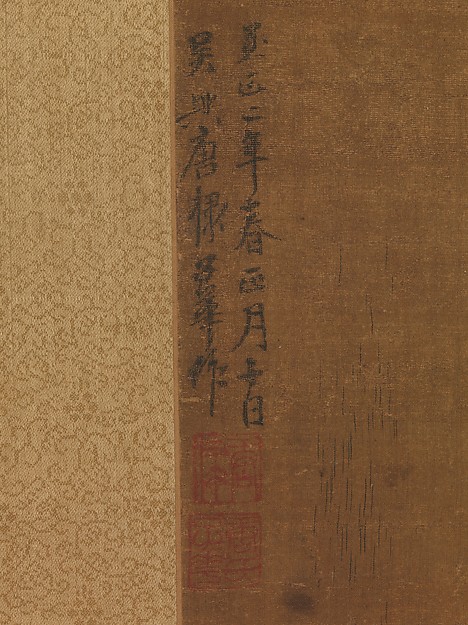 至正二年春正月十日
吳興唐棣子華作